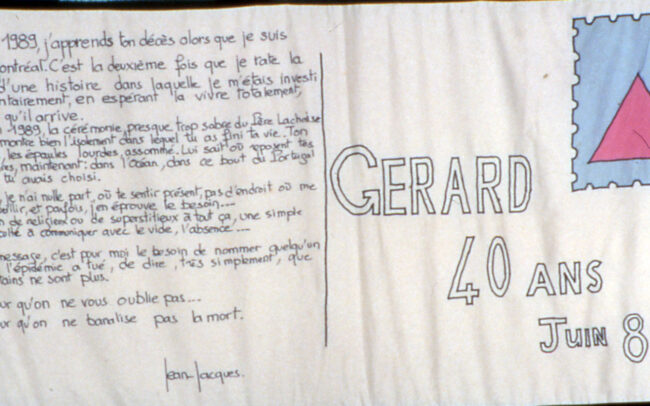 1989, j'apprends ton décès alors que je suis
ontréal. C'est la deuxième fois que je rate la
d'une histoire dans laquelle je m'étais investi
ntairement, en espérant la vivre totalement,
qu'il arrive.
1989, la cérémonie, presque trop sobre du Père Lachaise
montre bien l'isolement dans lequel tu as fini ta vie. Ton
les épaules lourdes, assommé. Lui sait où reposent tes
res, maintenant: dans l'Océan, dans ce bout du Portugal
tu avais choisi.
je n'ai nulle part, où te sentir présent, pas d'endroit où me
eillir, et parfois, j'en éprouve le besoin....
n de religieux ou de superstitieux à tout ça, une simple
culté à communiquer avec le vide, l'absence....
message, c'est pour moi le besoin de nommer quelqu'un
l'épidémie a tué, de dire, très simplement, que
tains ne sont plus.
ur qu'on ne vous oublie pas....
ur qu'on ne banalise pas la mort.
Jean-Jacques.
GERARD
40 ANS
JUIN 8